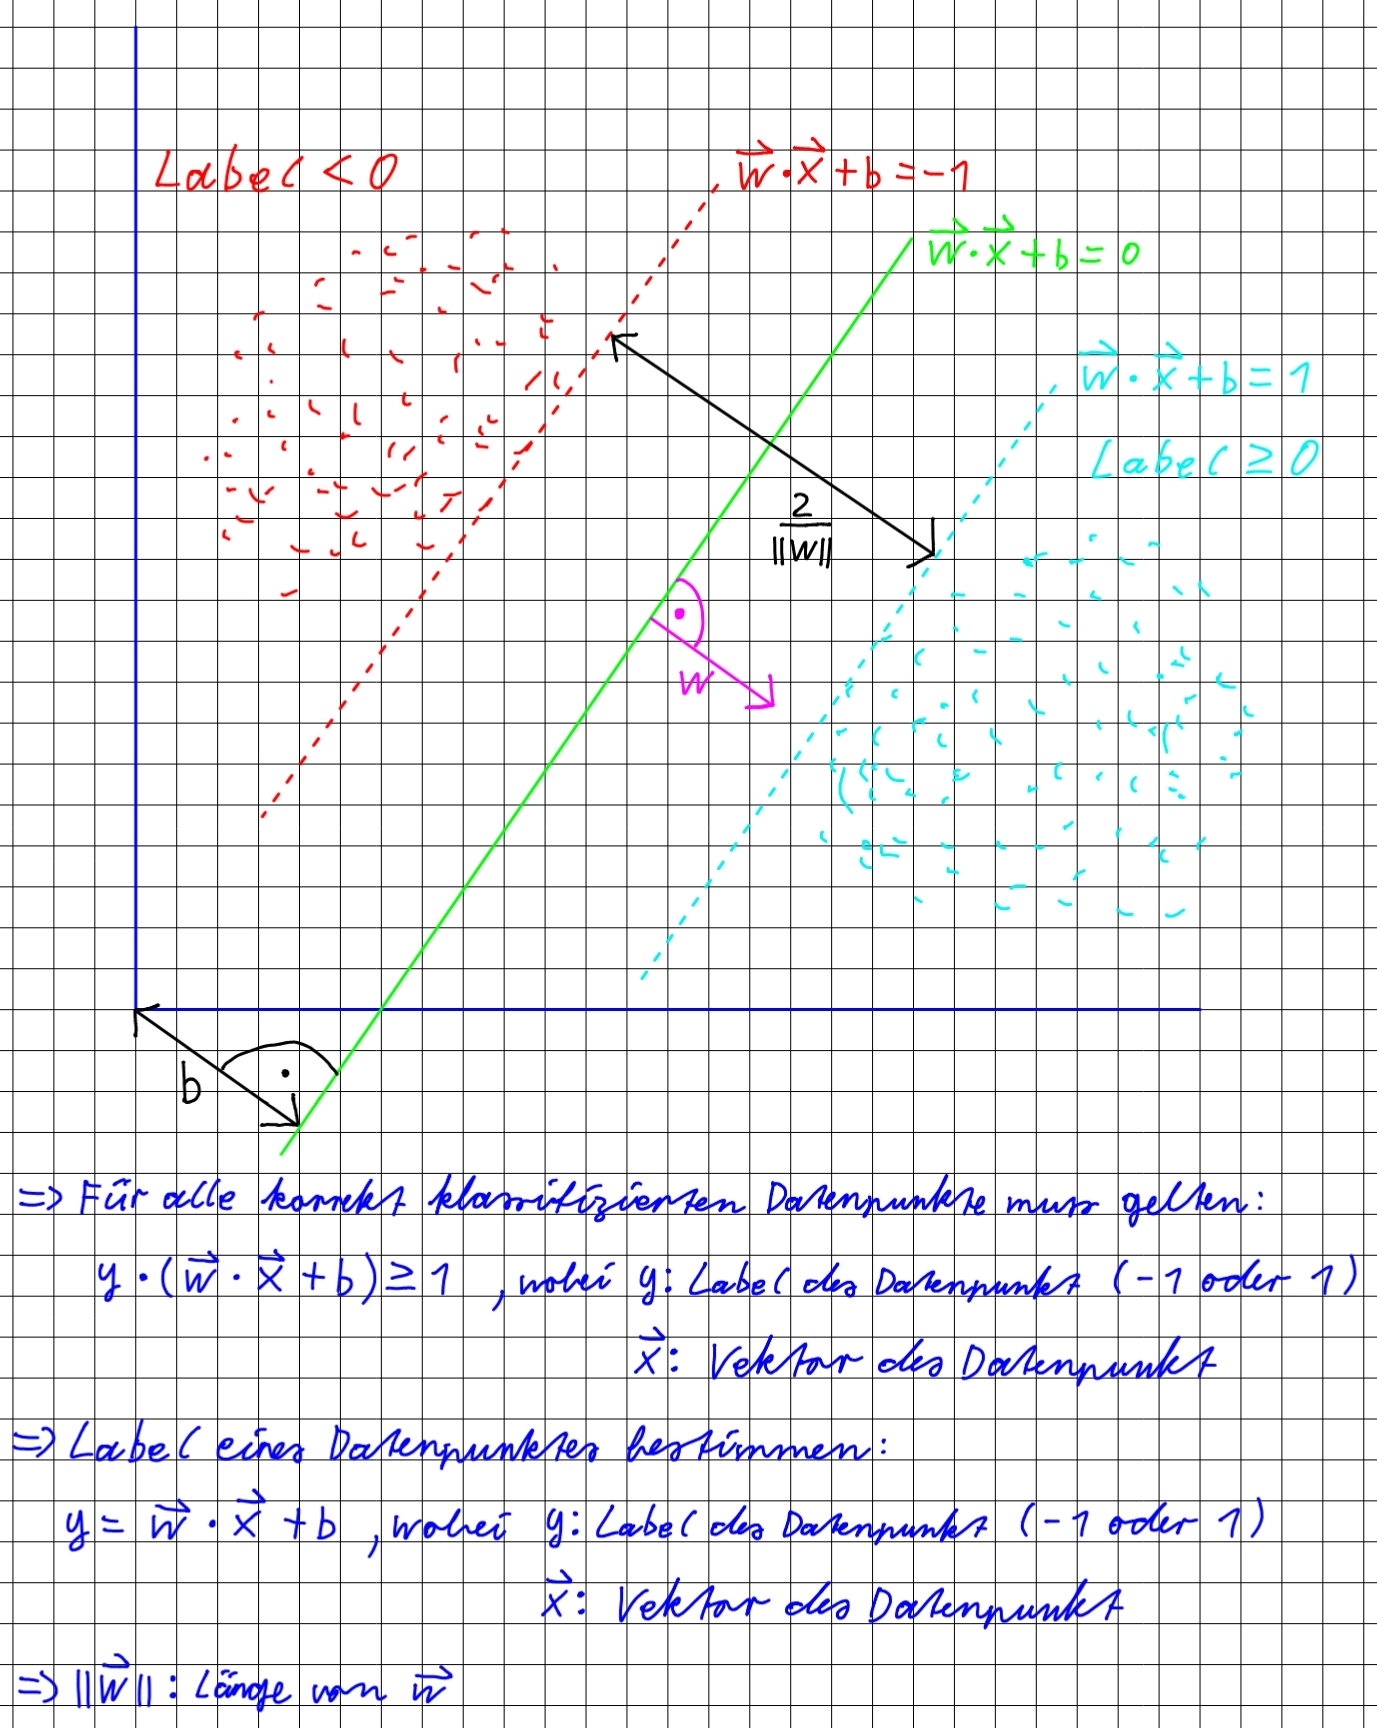 Label < 0
w⃗·x⃗+b=-1
w⃗·x⃗+b=0
w⃗·x⃗+b=1
Label ≥ 0
2
||W||
w
b
=> Für alle korrekt klassifizierten Datenpunkte muss gelten:
y·(w⃗·x⃗+b)≥1 , wobei y: Label des Datenpunkt (-1 oder 1)
x⃗: Vektor des Datenpunkt
=> Label eines Datenpunktes bestimmen:
y = w⃗·x⃗+b , wobei y: Label des Datenpunkt (-1 oder 1)
x⃗: Vektor des Datenpunkt
=> ||w⃗|| : Länge von w⃗